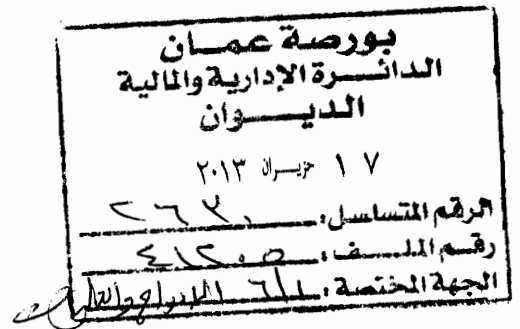 بورصة عمــان
الدائـــرة الإدارية والمالية
الديـــوان
١٧ حزيـران ٢٠١٣
الرقم المتسلسل: ٢٦٣٠
رقـم الملـــف: ٤١٢٠٥
الجهة المختصة: